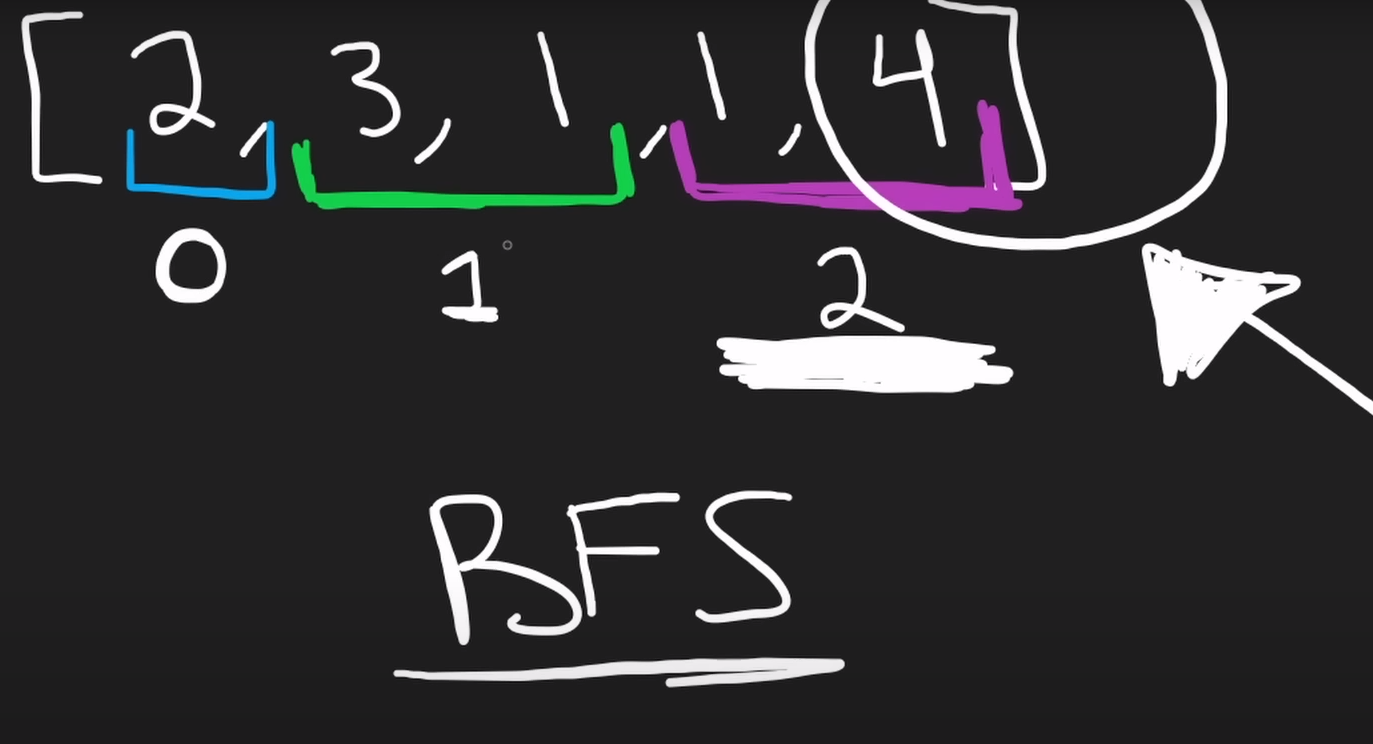 [2, 3, 1, 1, 4]
0 1 2
BFS